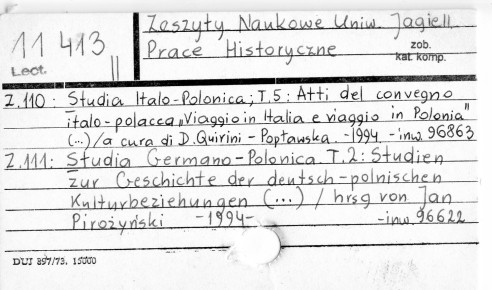 11 413
Lect. ||
Zeszyty Naukowe Uniw. Jagiell.
Prace Historyczne
zob.
kat. komp.
Z.110: Studia Italo-Polonica; T.5: Atti del convegno
italo-polacca „Viaggio in Italia e viaggio in Polonia"
(...) / a cura di D. Quirini-Popławska. -1994. -inw. 96863
Z.111: Studia Germano-Polonica. T.2: Studien
zur Geschichte der deutsch-polnischen
Kulturbeziehungen (...) / hrsg von Jan
Pirożyński -1994- -inw. 96622
DUJ 897/73. 15000